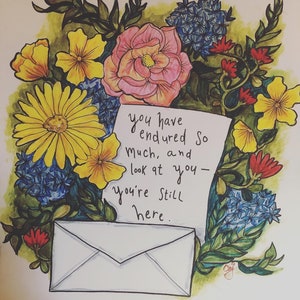 you have
endured so
much, and
look at you—
you're still
here.